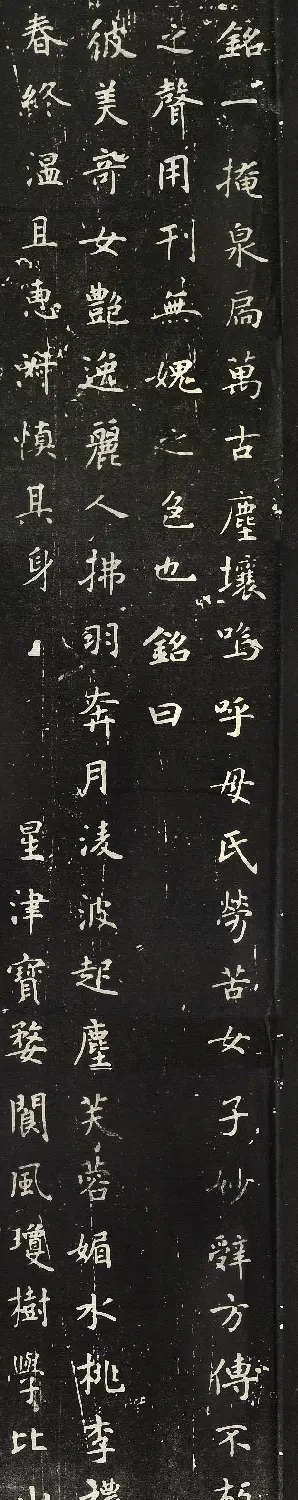 銘一掩泉扃萬古塵壤嗚呼母氏勞苦女子妙辭方傳不朽
之聲用刊無媿之色也銘曰
彼美奇女艷逸麗人拂羽奔月淩波起塵芙蓉媚水桃李
春終溫且惠鮮慎其身 星津寶婺閬風瓊樹學比